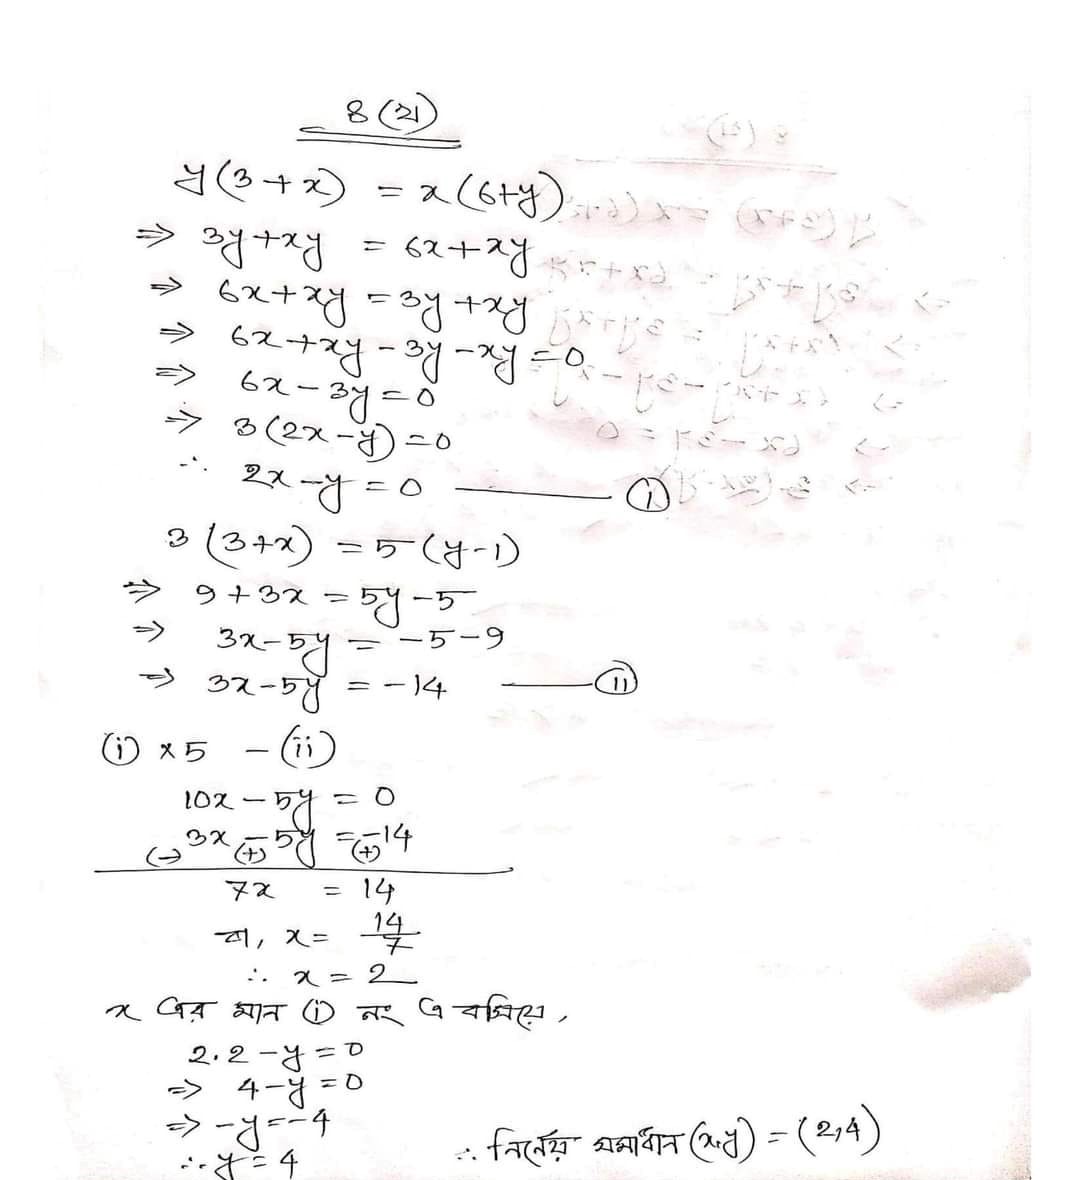 ৪(ঘ)
y(3+x) = x(6+y)
⇒ 3y+xy = 6x+xy
⇒ 6x+xy = 3y+xy
⇒ 6x+xy-3y-xy=0
⇒ 6x-3y=0
⇒ 3(2x-y)=0
∴ 2x-y=0 ——— (i)
3(3+x) = 5(y-1)
⇒ 9+3x = 5y-5
⇒ 3x-5y = -5-9
⇒ 3x-5y = -14 ——— (ii)
(i) ×5 - (ii)
10x-5y = 0
(-) 3x (+)-5y = (+)-14
7x = 14
বা, x = 14/7
∴ x = 2
x এর মান (i) নং এ বসিয়ে,
2.2-y=0
⇒ 4-y=0
⇒ -y=-4
∴ y=4
∴ নির্ণেয় সমাধান (x,y) = (2,4)